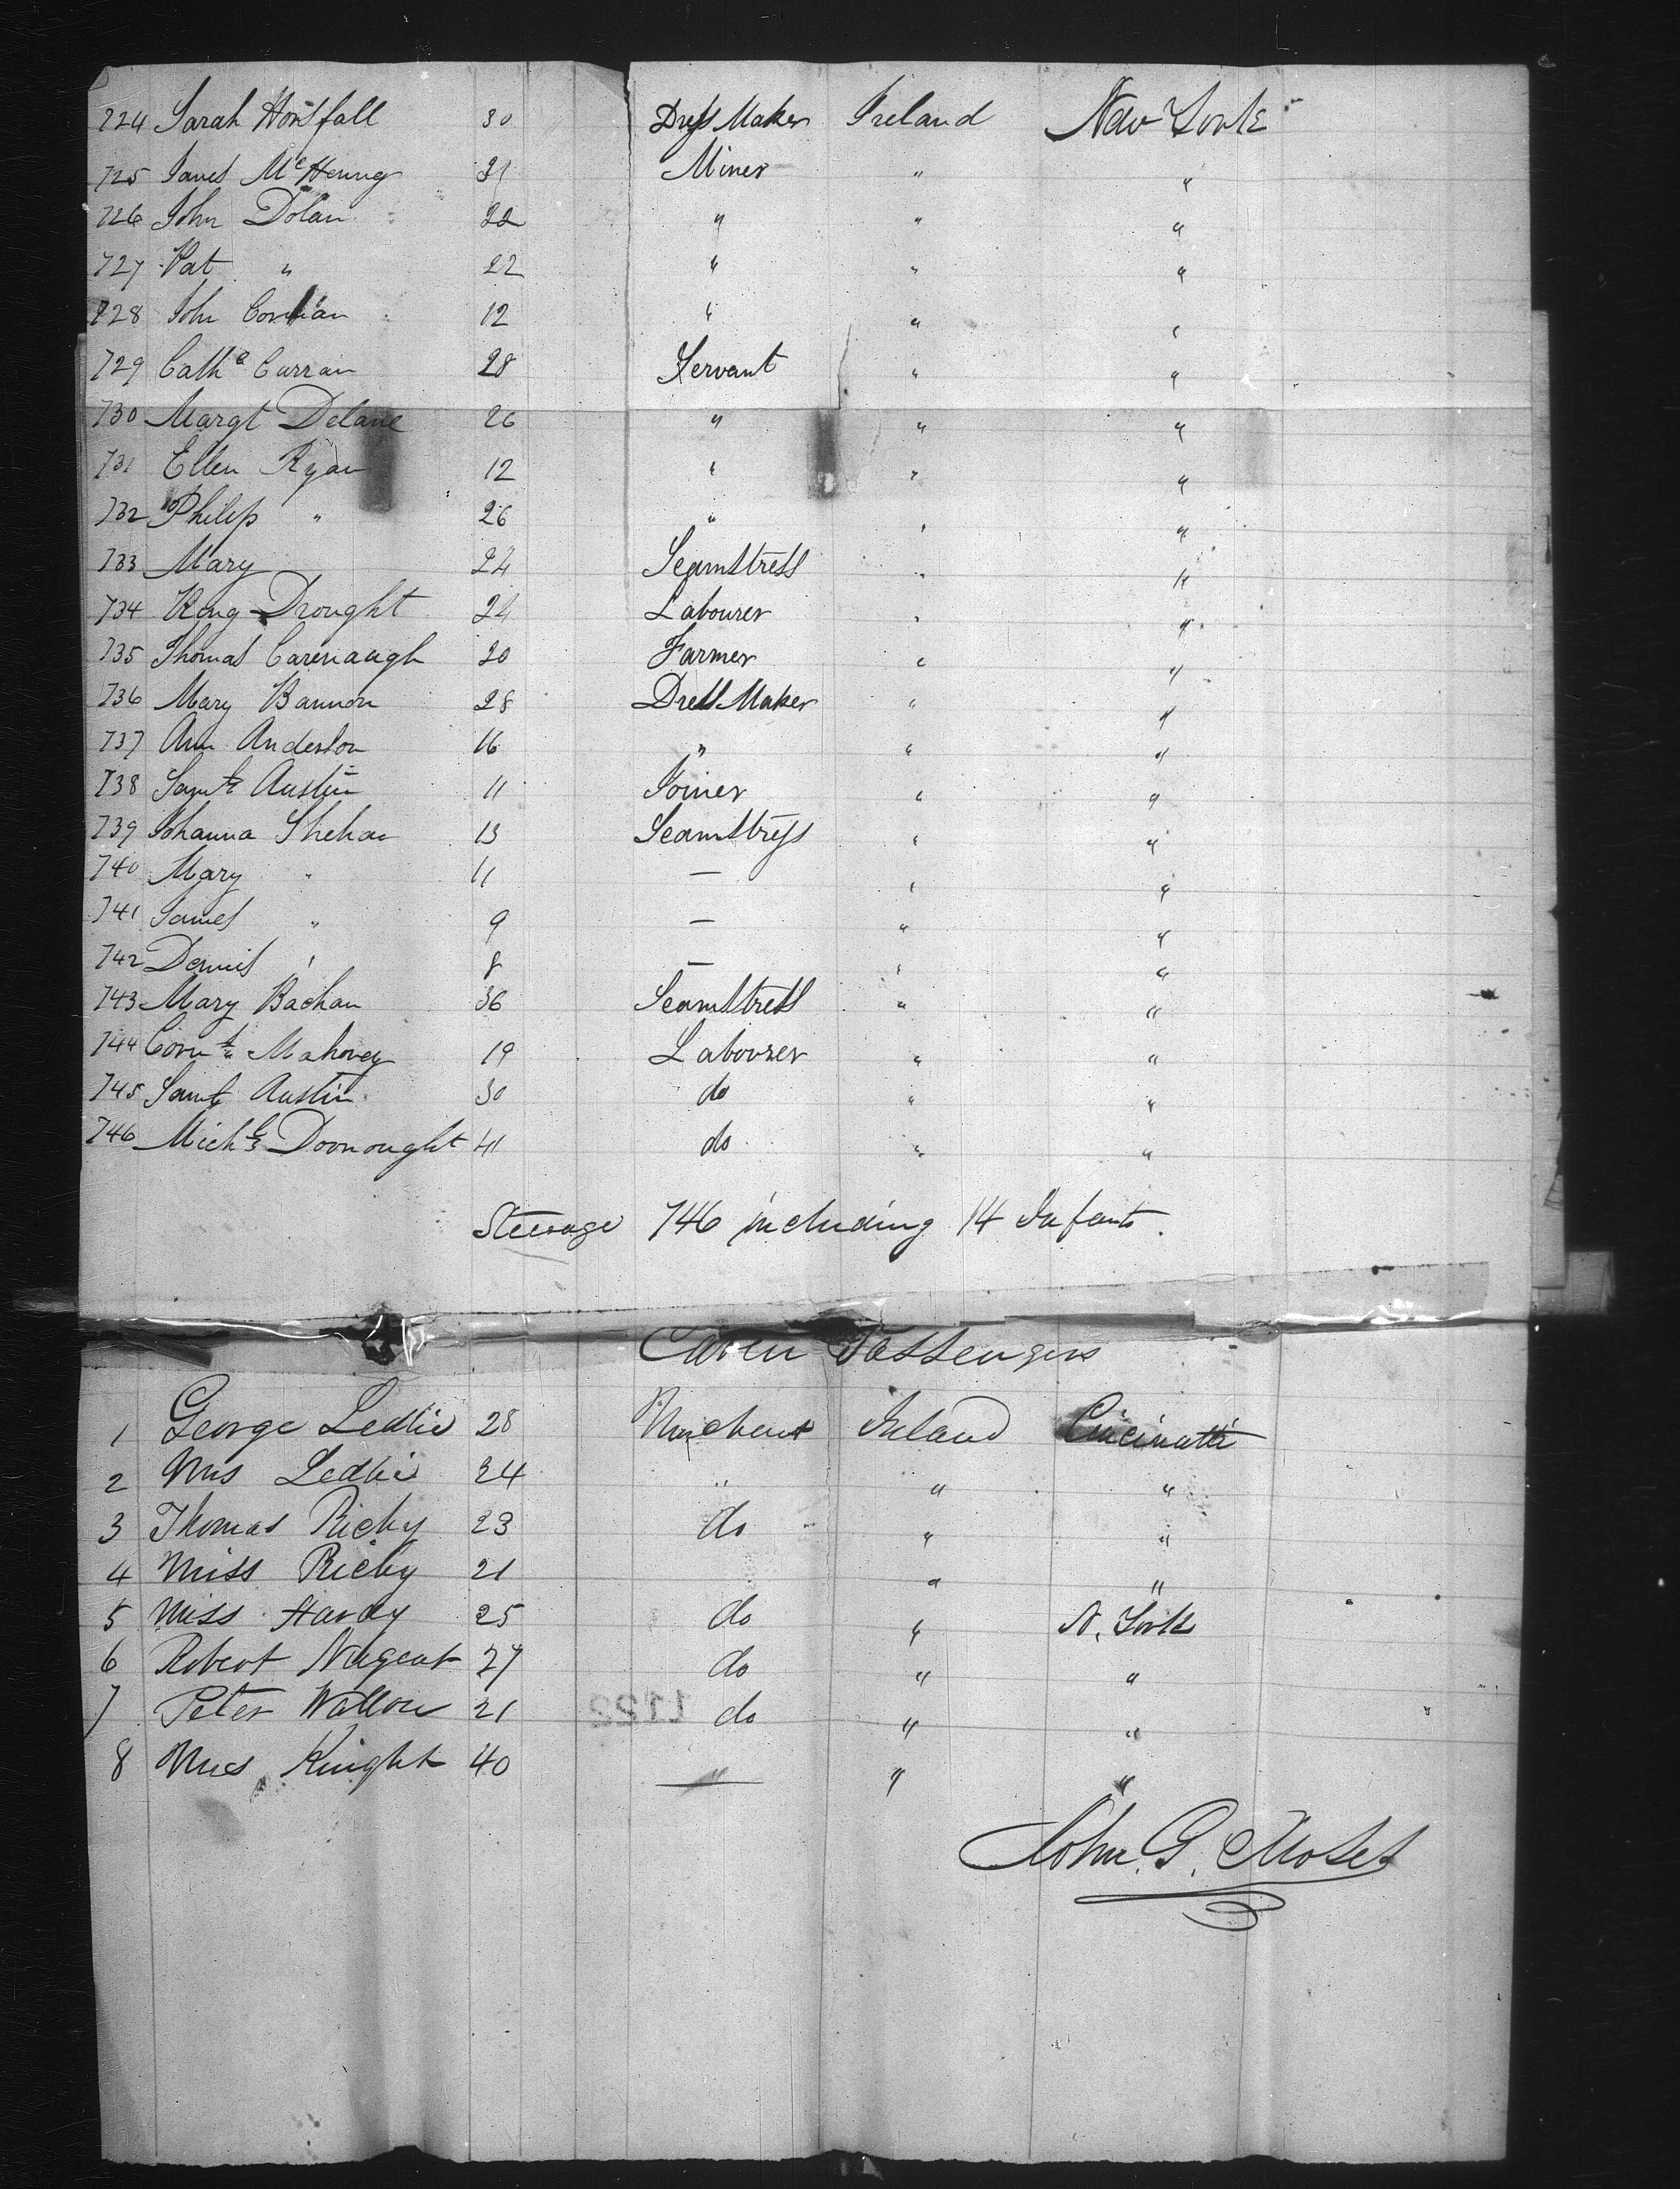 724 Sarah Horsfall 30 Dress Maker Ireland New York
725 James McHenry 31 Miner " "
726 John Dolan 22 " " "
727 Pat " 22 " " "
728 John 12 " " "
729 Cathe Curran 28 Servant " "
730 Margt Delane 26 " " "
731 Ellen Ryan 12 " " "
732 Philip " 26 " " "
733 Mary 24 Seamstress " "
734 King Drought 24 Labourer " "
735 Thomas Cavenaugh 20 Farmer " "
736 Mary Bannon 28 Dress Maker " "
737 Ann Anderson 16 " " "
738 Saml Austin 11 Joiner " "
739 Johanna Shehan 13 Seamstress " "
740 Mary " 11 — " "
741 James " 9 — " "
742 Dennis " 8 — " "
743 Mary 36 Seamstress " "
744 Corns Mahoney 19 Labourer " "
745 Saml Austin 30 do " "
746 Michl Doonought 41 do " "
Steerage 746 including 14 Infants.
Cabin Passengers
1 George Ledlie 28 Merchant Ireland Cincinatti
2 Mrs Ledlie 24 " " "
3 Thomas Richy 23 do " "
4 Miss Richy 21 " "
5 Miss Hardy 25 do " N. York
6 Robert Nugent 27 do " "
7 Peter 21 do " "
8 Mrs Knight 40 — " " "
1122
John. G. Moses